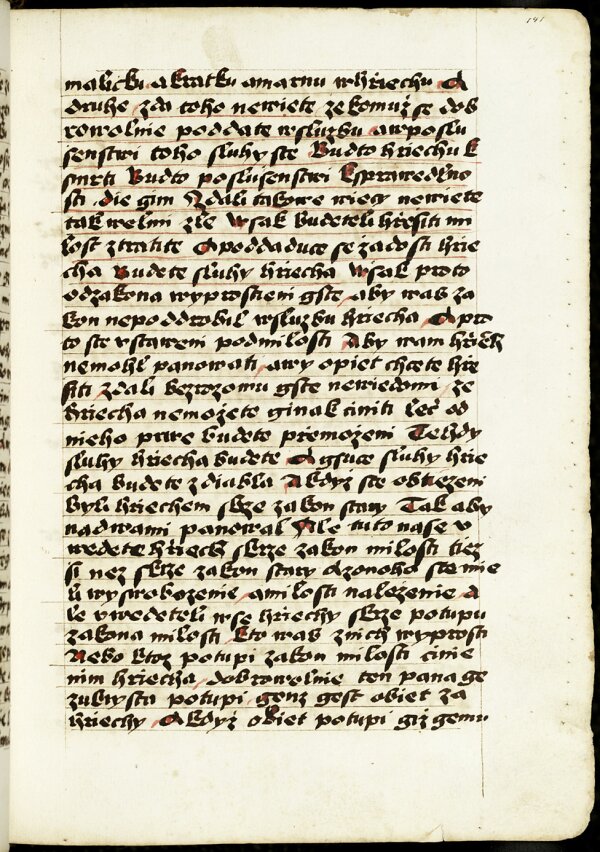 141
maličku a kratku amarnu whřiechu A
druhe zda toho newiete ze komuz se dob
rowolnie poddate wsluzbu awposlu
senstwi toho sluhy ste Budto hriechu k
smrti Budto poslusenstwi ksprawedlno
sti die gim Zdali takowe wiecy newiete
tak welmi zle wsak budeteli hřesiti mi
lost ztratite A poddaduce se žadosti hrie
cha budete sluhy hriecha wsak proto
odzakona wyprostieni gste aby was za
kon nepoddrobil wsluzbu hriecha A pro
to ste wstaweni podmilosti Aby wam hřiech
nemohl panowati awy opiet chcete hře
siti zdali bezrozomu gste newiedomi ze
hriecha nemožete ginak činiti leč od
nieho prwe budete přemoženi Tehdy
sluhy hriecha budete A gsuce sluhy hrie
cha budete z diabla A kdyz ste obtiezeni
byli hriechem skrze zakon stary Tak aby
nadwami panowal Ale tuto nase v
wedete hřiech skrze zakon milosti tiez
si nez skrze zakon stary Azonoho ste mie
li wyswobozenie amilosti nalezenie A
le vwedeteli wse hriechy skrze potupu
zakona milosti kto was znich wyprosti
Nebo ktoz potupi zakon milosti činie
nim hriecha dobrowolnie ten pana ge
zukrysta potupi genz gest obiet za
hriechy A kdyz obiet potupi giz gemu